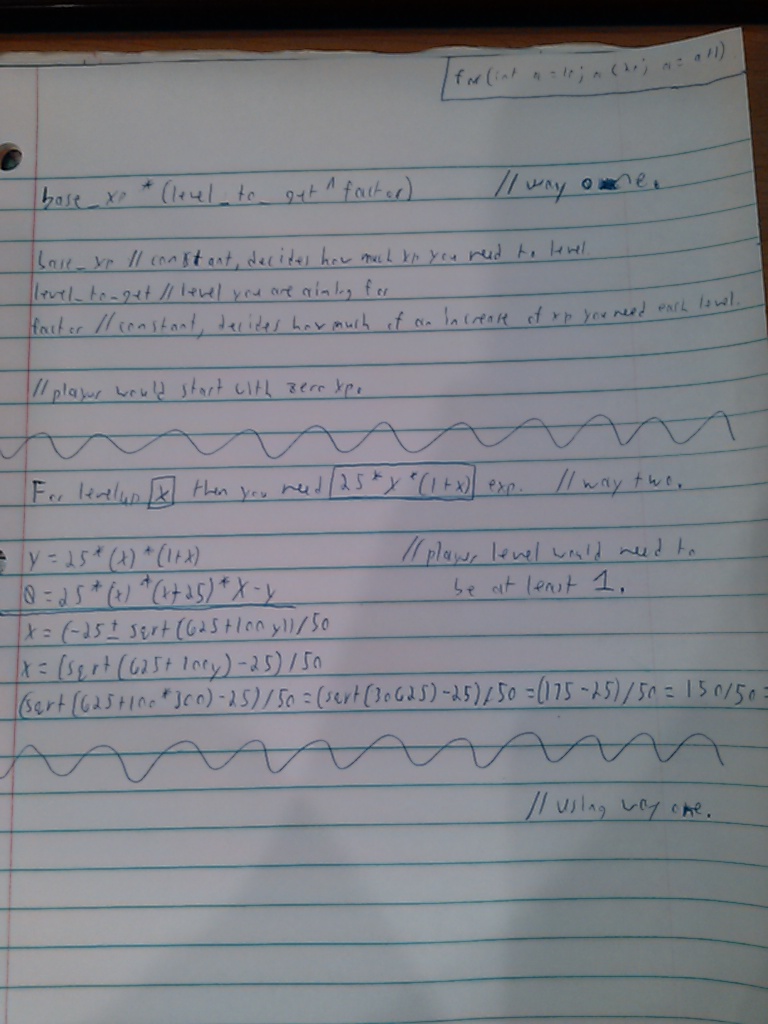 for(int a = 10; a < 20; a = a+1)
base_xp * (level_to_get ^ factor) // way one.
base_xp // constant, decides how much xp you need to level
level_to_get // level you are aiming for
factor // constant, decides how much of an increase of xp you need each level.
// player would start with zero xp.
For levelup x then you need 25*x*(1+x) exp. // way two.
y = 25*(x)*(1+x) // player level would need to
0 = 25*(x)*(x+25)*x-y be at least 1.
x = (-25 ± sqrt(625+100y))/50
x = (sqrt(625+100y)-25)/50
(sqrt(625+100*300)-25)/50 = (sqrt(30625)-25)/50 = (175-25)/50 = 150/50 =
// using way one.